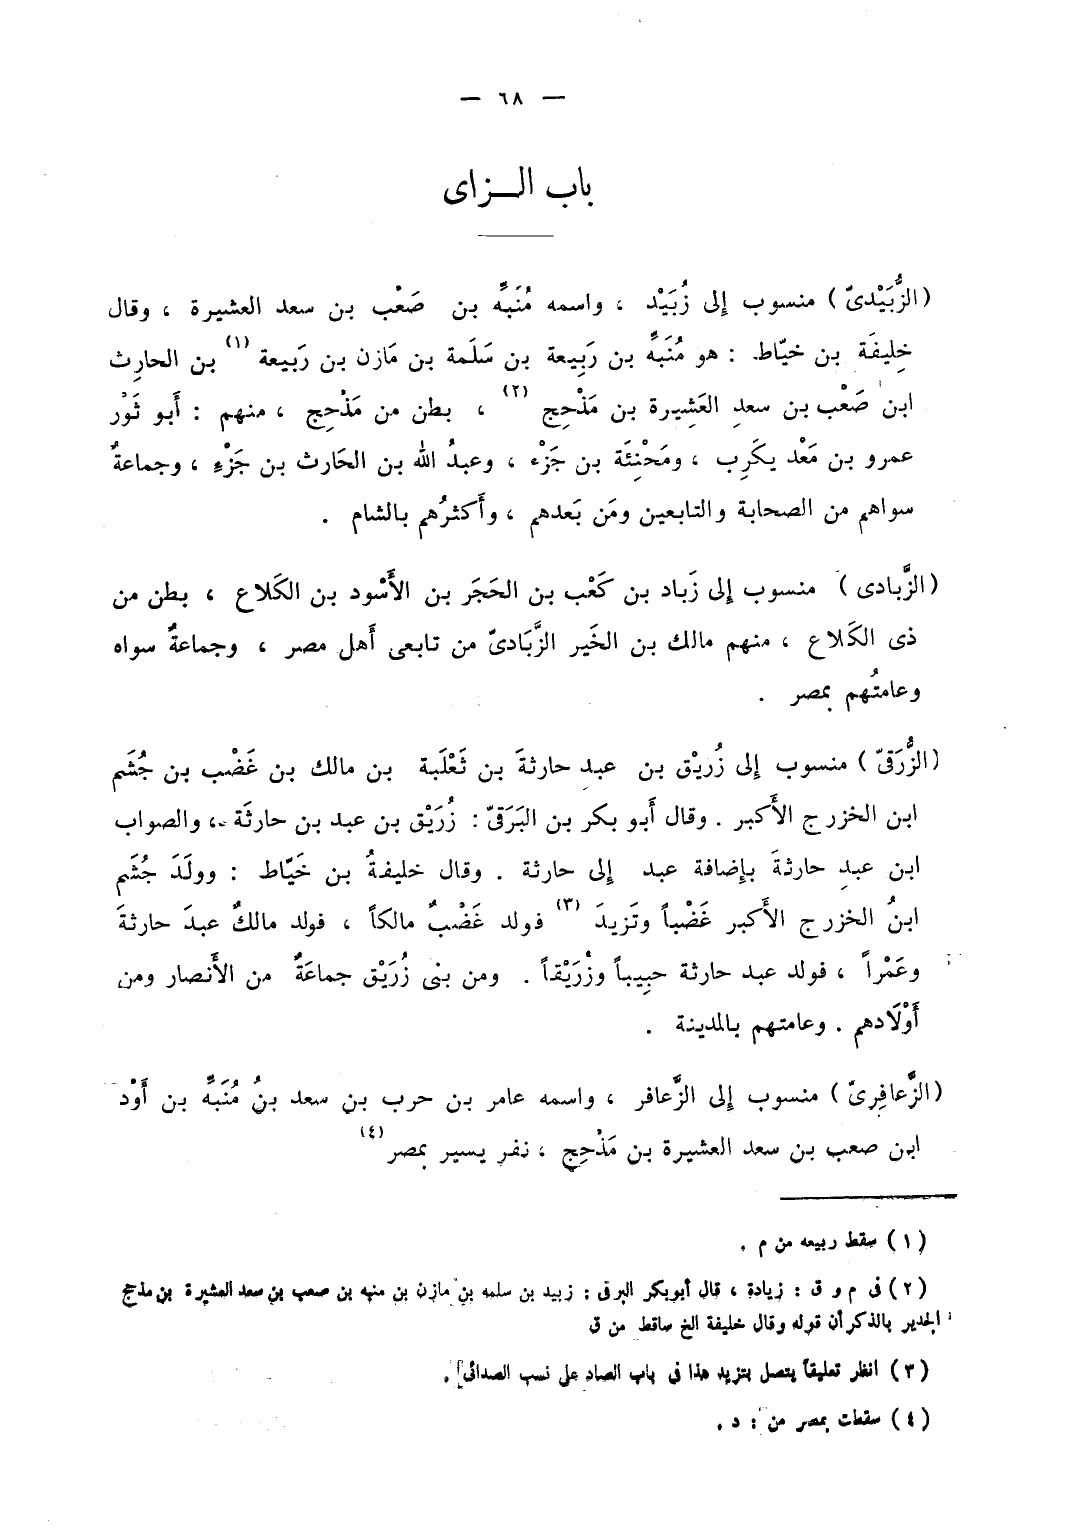 — ٦٨ —
باب الـــزاى
(الزُّبَيْدىّ) منسوب إلى زُبَيْد ، واسمه مُنَبِّه بن صَعْب بن سعد العشيرة ، وقال
خِليفَة بن خيّاط : هو مُنَبِّه بن رَبِيعة بن سَلَمة بن مَازن بن رَبيعة (١) بن الحارِث
ابن صَعْب بن سعدِ العَشِيرة بن مَذْحِج (٢) ، بطن من مَذْحِج ، منهم : أَبو ثَوْر
عمرو بن مَعْد يكَرِب ، ومَحْنِئَة بن جَزْء ، وعبدُ الله بن الحَارث بن جَزْءِ ، وجماعةٌ
سواهم من الصحابة والتابعين ومَن بَعدهم ، وأَكثرُهم بالشام .
(الزَّبادى) منسوب إلى زَباد بن كَعْب بن الحَجَر بن الأَسْود بن الكَلاع ، بطن من
ذى الكَلاع ، منهم مالك بن الخَير الزَّبَادىّ من تابعى أَهل مصر ، وجماعةٌ سواه
وعامتُهم بمصر .
(الزُّرَقىّ) منسوب إلى زُريْق بن عبدِ حارثةَ بن ثَعْلَبة بن مالك بن غَضْب بن جُشَم
ابن الخزرج الأَكبر . وقال أَبو بكر بن البَرَقىّ : زُرَيْق بن عبد بن حارثَة ، والصواب
ابن عبدِ حارثةَ بإضافة عبد إلى حارثة . وقال خليفةُ بن خَيّاط : وولَدَ جُشَم
ابنُ الخزرج الأَكبر غَضْباً وتَزيدَ (٣) فولد غَضْبٌ مالكاً ، فولد مالكٌ عبدَ حارثةَ
وعَمْراً ، فولد عبد حارثة حبِيباً وزُرَيْقاً . ومن بنى زُرَيْق جماعَةٌ من الأَنصار ومن
أَوْلَادهم . وعامتهم بالمدينة .
(الزَّعافِرىّ) منسوب إلى الزَّعافر ، واسمه عامر بن حرب بن سعد بنُ مُنَبِّه بن أَوْد
ابن صعب بن سعد العشيرة بن مَذْحِج ، نفر يسير بمصر (٤)
(١) سقط ربيعه من م .
(٢) فى م و ق : زيادة ، قال أبوبكر البرقى : زبيد بن سلمه بن مازن بن منبه بن صعب بن سعد العشيرة بن مذحج
الجدير بالذكر أن قوله وقال خليفة الخ ساقط من ق
(٣) انظر تعليقاً يتصل بتزيد هذا فى باب الصاد على نسب الصدائى .
(٤) سقطت بمصر من : د .